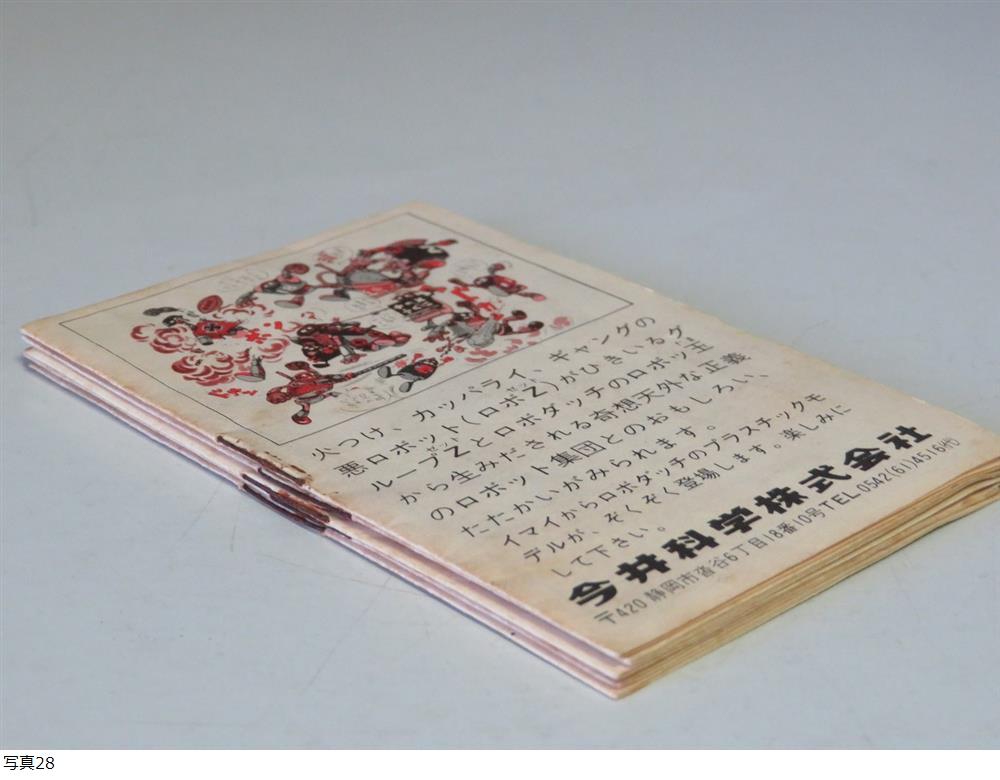 火つけ、カッパライ、ギャングの
悪ロボット(ロボZ)がひきいるグ
ループZとロボダッチのロボツ玉
から生みだされる奇想天外な正義
のロボット集団とのおもしろい、
たたかいがみられます。
イマイからロボダッチのプラスチックモ
デルが、ぞくぞく登場します。楽しみに
して下さい。
今井科学株式会社
〒420 静岡市沓谷6丁目18番10号TEL0542(61)4516㈹
写真28